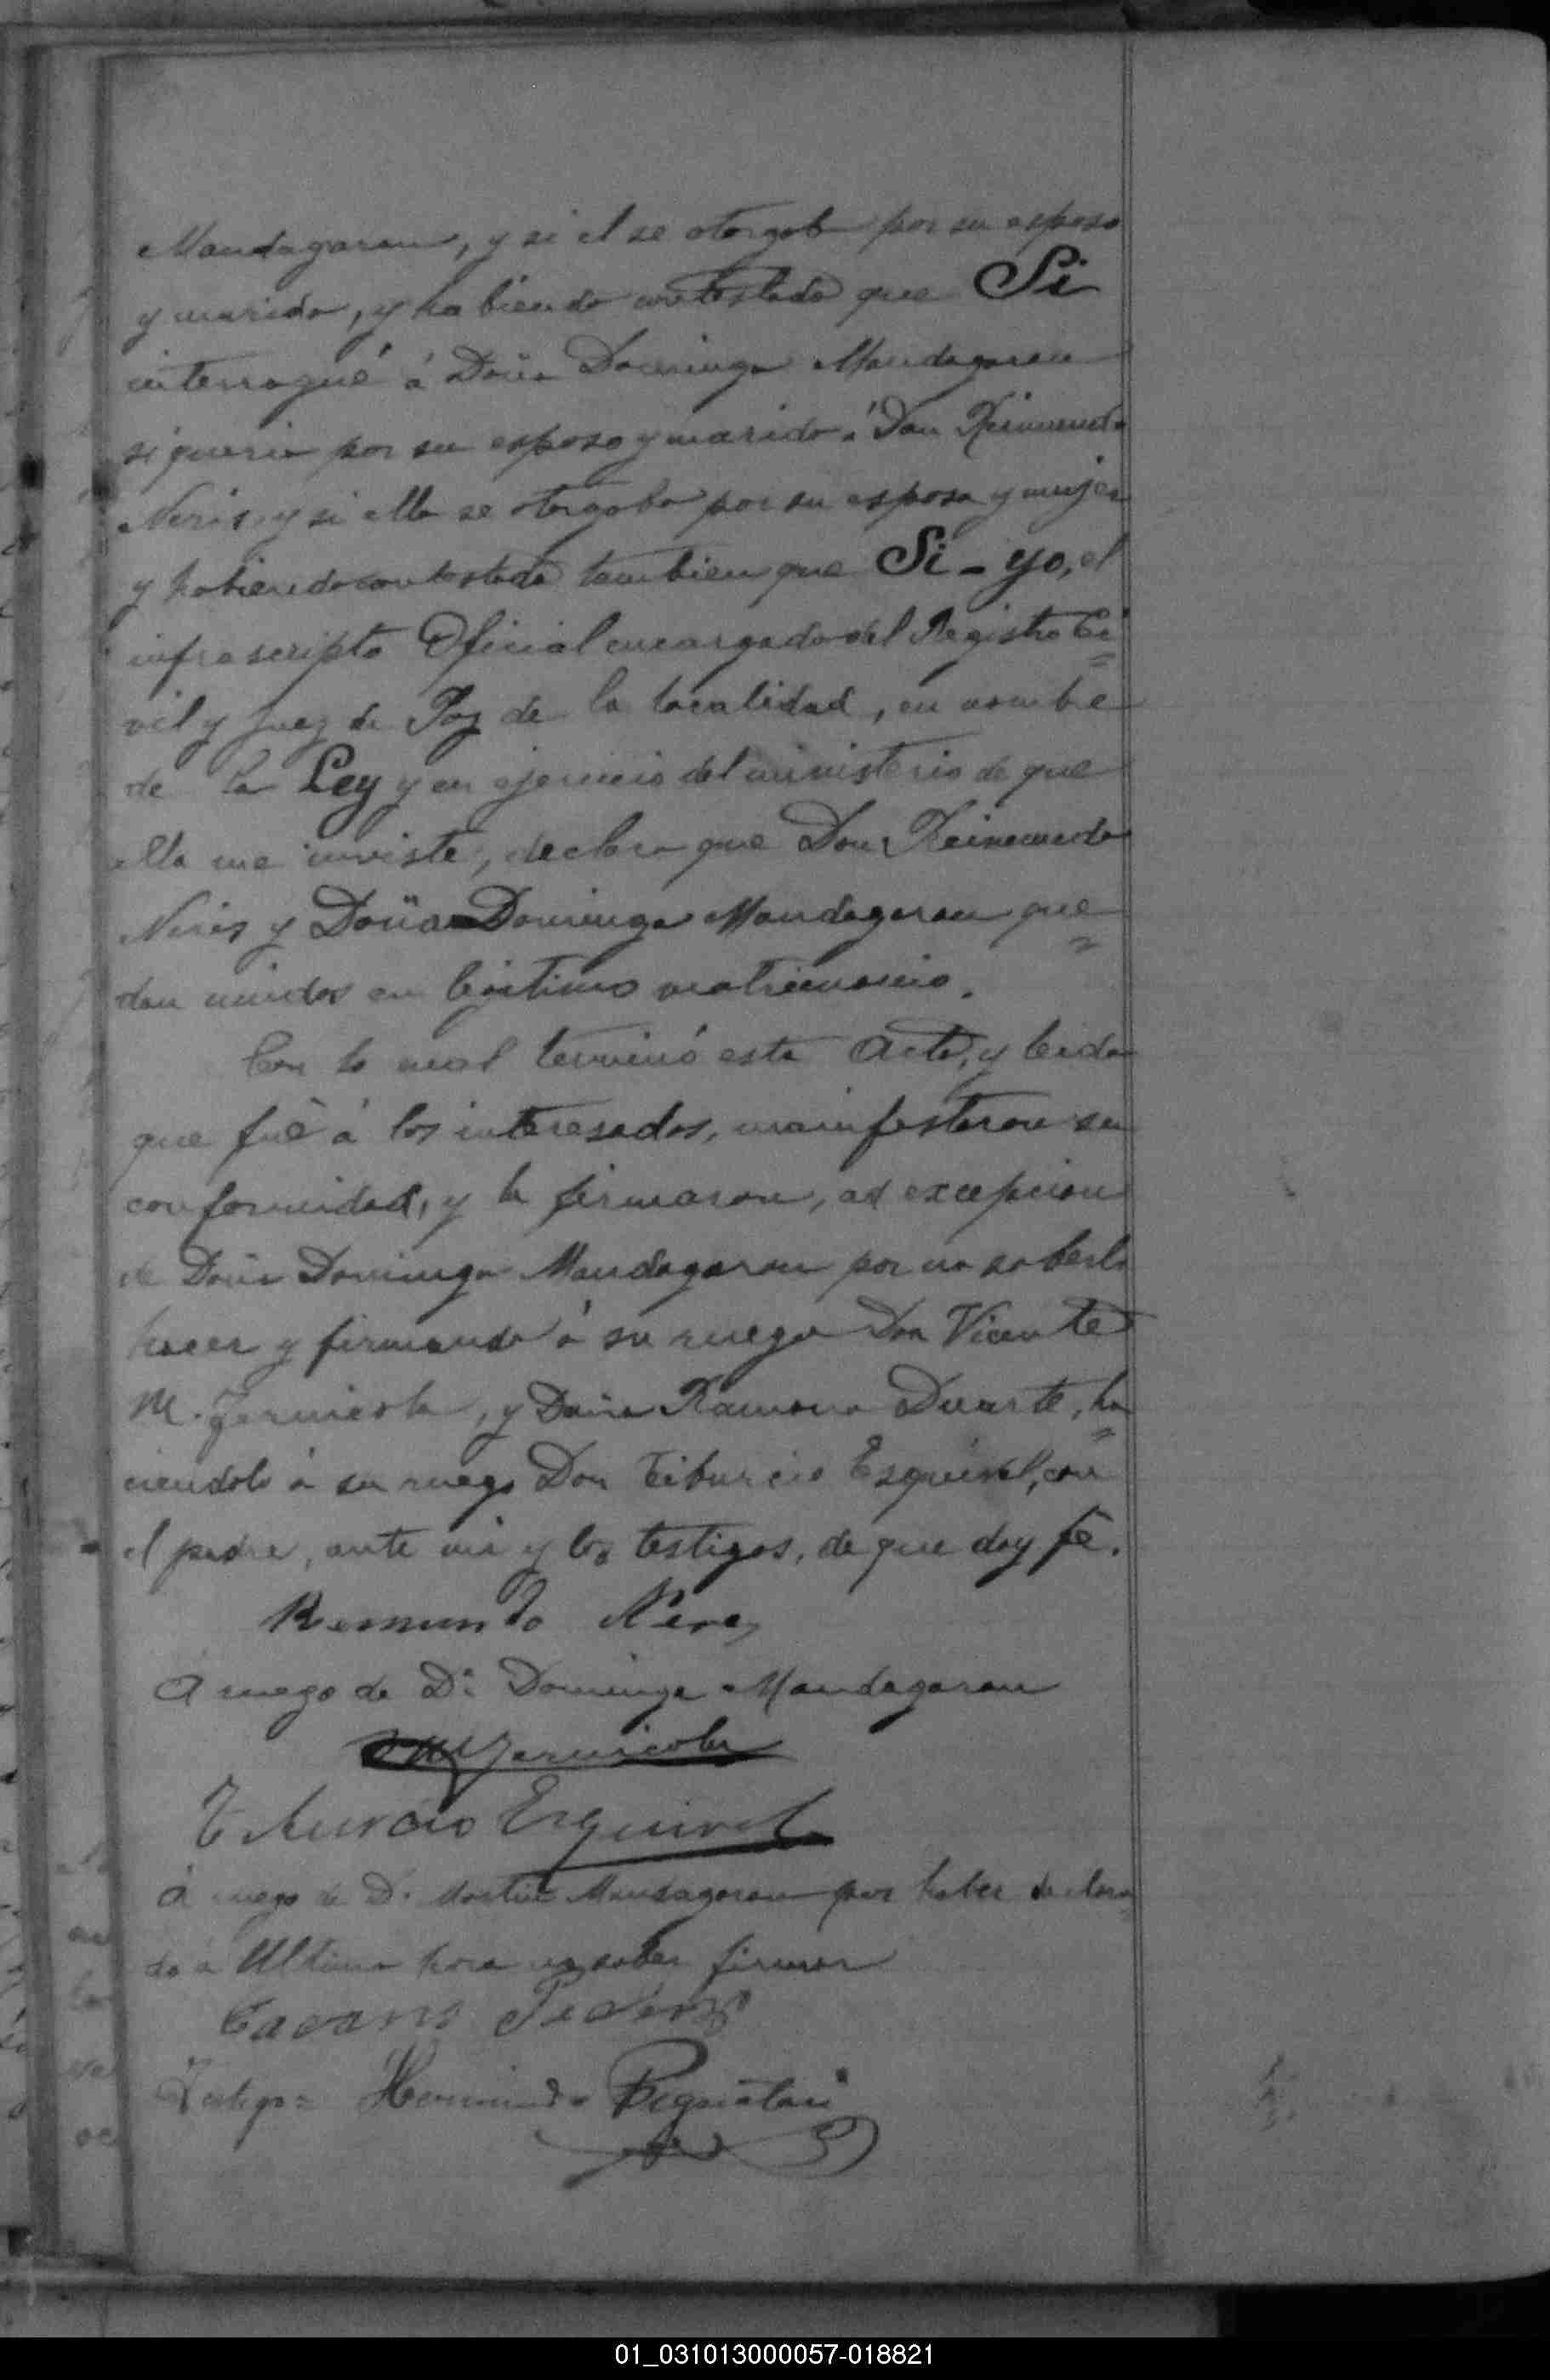 Mandagaran, y si el se otorgaba por su esposo
y marido, y habiendo contestado que Si
interrogué á Doña Dominga Mandagaran
si queria por su esposo y marido á Don Reimundo
Neris, y si ella se otorgaba por su esposa y mujer
y habiendo contestado tambien que Si - yo, el
infrascripto Oficial encargado del Registro Ci
vil y Juez de Paz de la localidad, en nombre
de la Ley y en ejercicio del ministerio de que
ella me inviste, declaro que Don Reimundo
Neris y Doña Dominga Mandagaran que
dan unidos en legitimo matrimonio.
Con lo cual terminó esta Acta, y leida
que fué á los interesados, manifestaron su
conformidad, y la firmaron, ad excepcion
de Doña Dominga Mandagaran por no saberlo
hacer y firmando á su ruego Don Vicente
M. , y Doña Ramona Duarte, ha
ciendolo á su ruego Don Tiburcio Esquivel, con
el padre, ante mi y los testigos, de que doy fé.
Remundo Nere
A ruego de Dª Dominga Mandagaran
Tiburcio Esquivel
A ruego de D. Martin Mandagaran por haber declara
do a Ultima hora no saber firmar
Testigo=